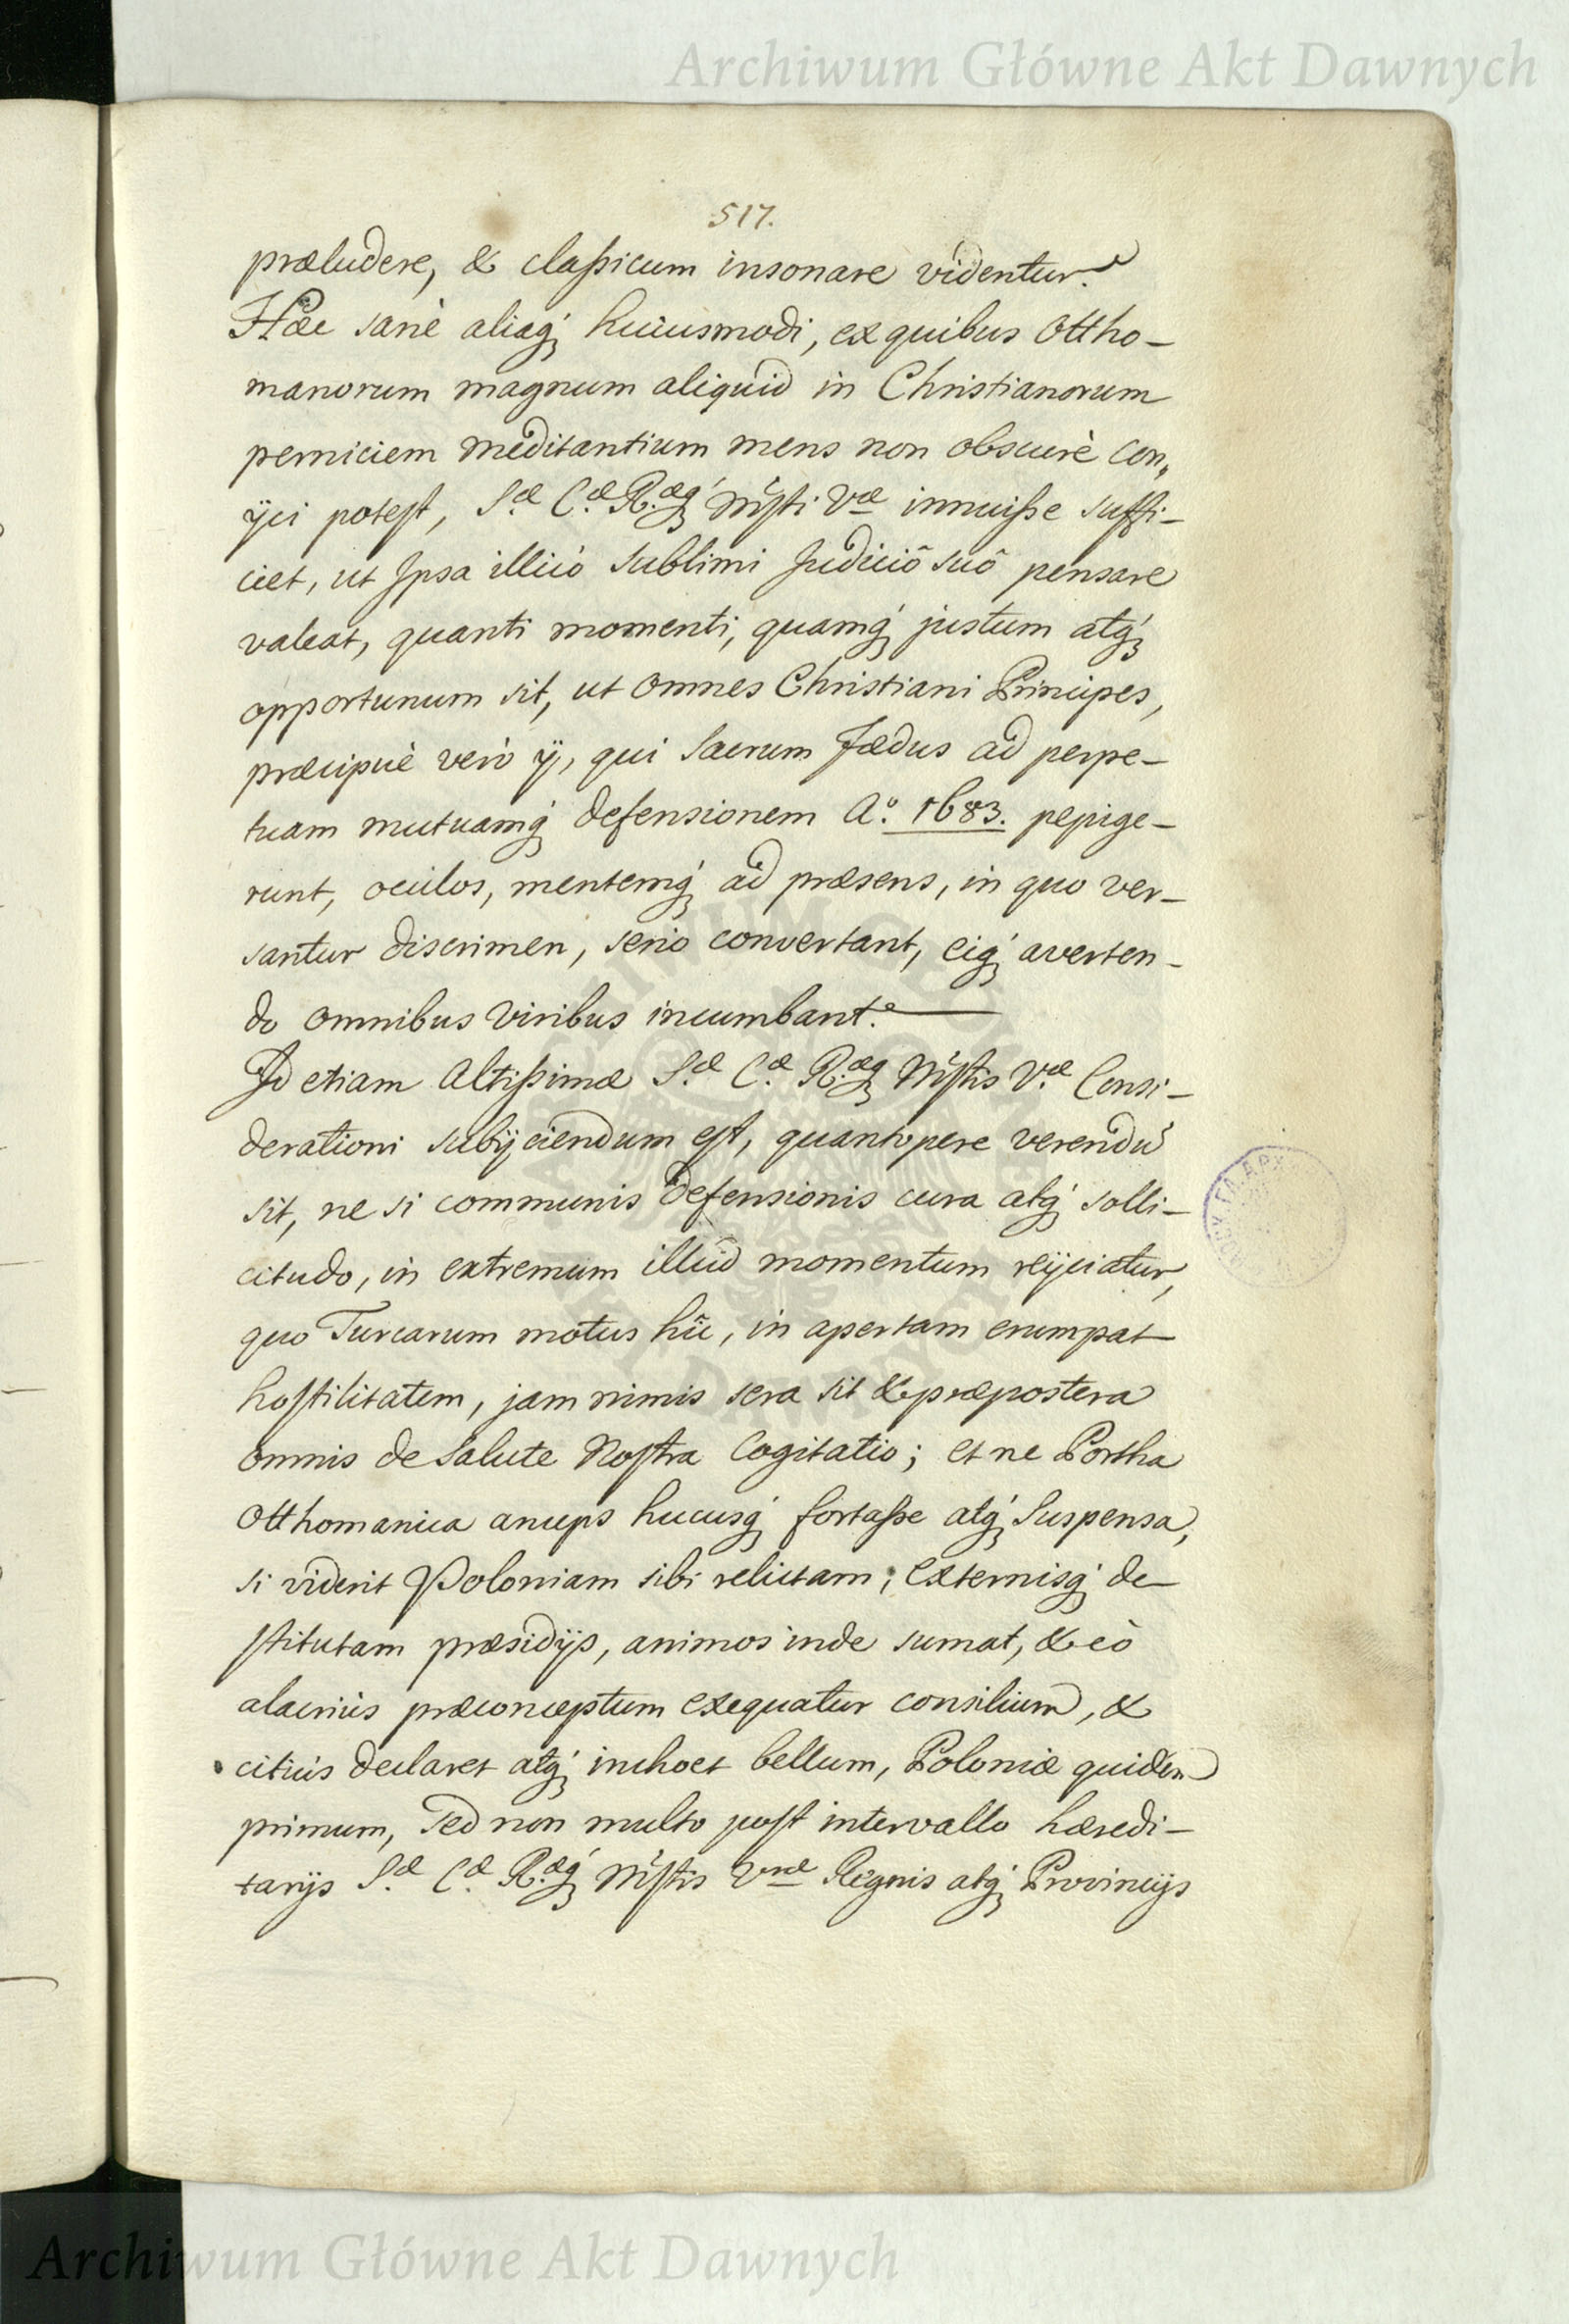 Archiwum Główne Akt Dawnych
517.
præludere, & claßicum insonare videntur.
Hæc sanè aliaq́; huiusmodi, ex quibus Ottho-
manorum magnum aliquid in Christianorum
perniciem meditantium mens non obscurè con„
ÿci potest, S.æ C.æ R.æq́; Mʼsti Væ innuiße suffi-
ciet, ut Ipsa illicò sublimi Judiciô suô pensare
valeat, quanti momenti, quamq́; justum atq́;
opportunum sit, ut omnes Christiani Principes,
præcipuè verò ÿ, qui Sacrum Fædus ad perpe-
tuam mutuamq́; defensionem Aº. 1683. pepige-
runt, oculos, mentemq́; ad præsens, in quo ver-
santur discrimen, seriò convertant, eiq́; averten-
do omnibus viribus incumbant.
Id etiam Altißimæ S.æ C.æ R.æq; Mʼstis V.æ Consi-
derationi subÿciendum est, quantopere verendū
sit, ne si communis defensionis cura atq́; solli-
citudo, in extremum illud momentum reÿciatur,
quo Turcarum motus hîc, in apertam erumpat
hostilitatem, jam nimis sera sit & præpostera
omnis de Salute Nostra Cogitatio; et ne Portha
Otthomanica anceps hucusq́; fortaße atq́; Suspensa,
si viderit Poloniam sibi relictam; Externisq́; de-
stitutam præsidÿs, animos inde sumat, & eò
alacriùs præconceptum exequatur consilium, &
citiùs declaret atq́; inchoet bellum, Poloniæ quidem
primum, sed non multo post intervallo hæredi-
tarÿs S.æ C.æ R.æq́; Mʼstis Vræ Regnis atq́; Provincÿs
Archiwum Główne Akt Dawnych